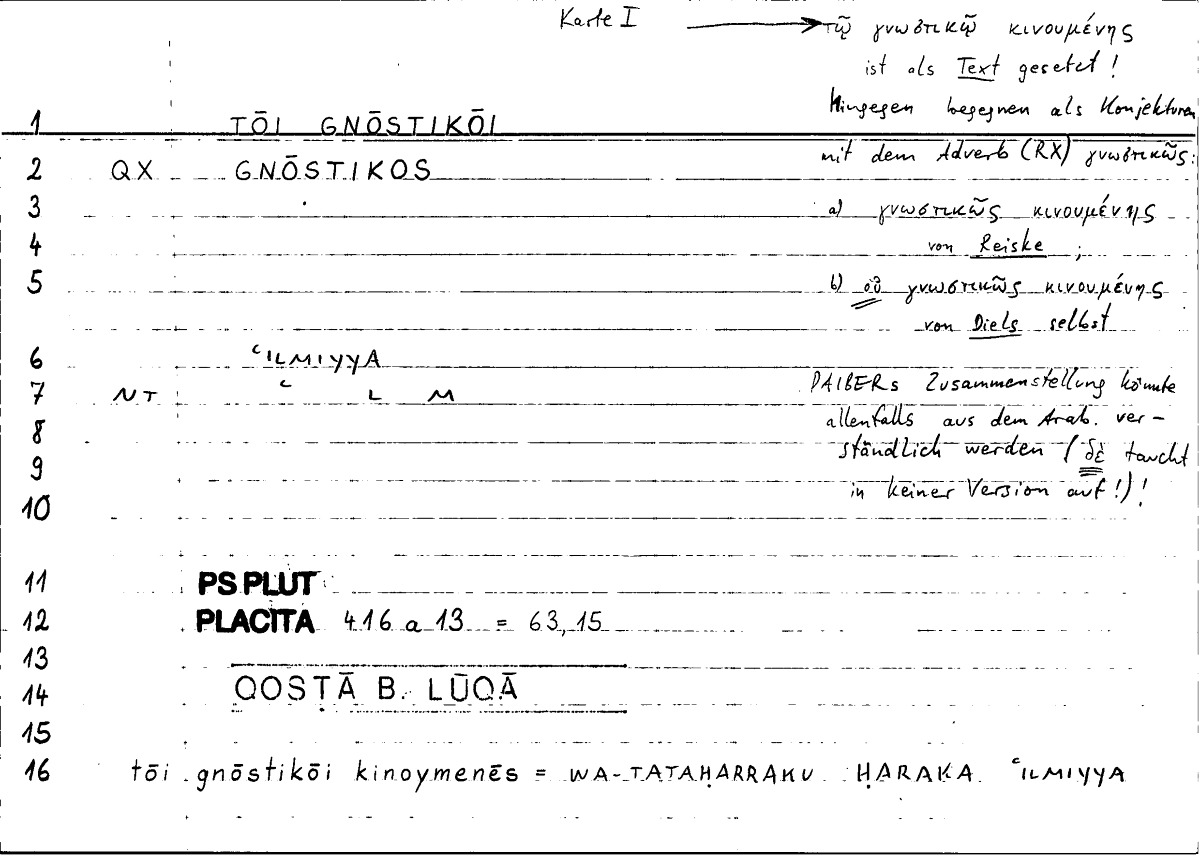 Karte I → τῷ γνωστικῷ κινουμένης
ist als Text gesetzt!
Hingegen begegnen als Konjekturen
1 TŌI GNŌSTIKŌI
mit dem Adverb (RX) γνωστικῶς:
2 QX GNŌSTIKOS
3 a) γνωστικῶς κινουμένης
4 von Reiske;
5 b) οὐ γνωστικῶς κινουμένης
von Diels selbst
6 ʿILMIYYA
7 NT ʿ L M
DAIBERs Zusammenstellung könnte
8 allenfalls aus dem Arab. ver-
9 ständlich werden (δὲ taucht
10 in keiner Version auf!)!
11 PS PLUT
12 PLACITA 416 a 13 = 63,15
13
14 QOSṬĀ B. LŪQĀ
15
16 tōi gnōstikōi kinoymenēs = WA-TATAḤARRAKU ḤARAKA ʿILMIYYA